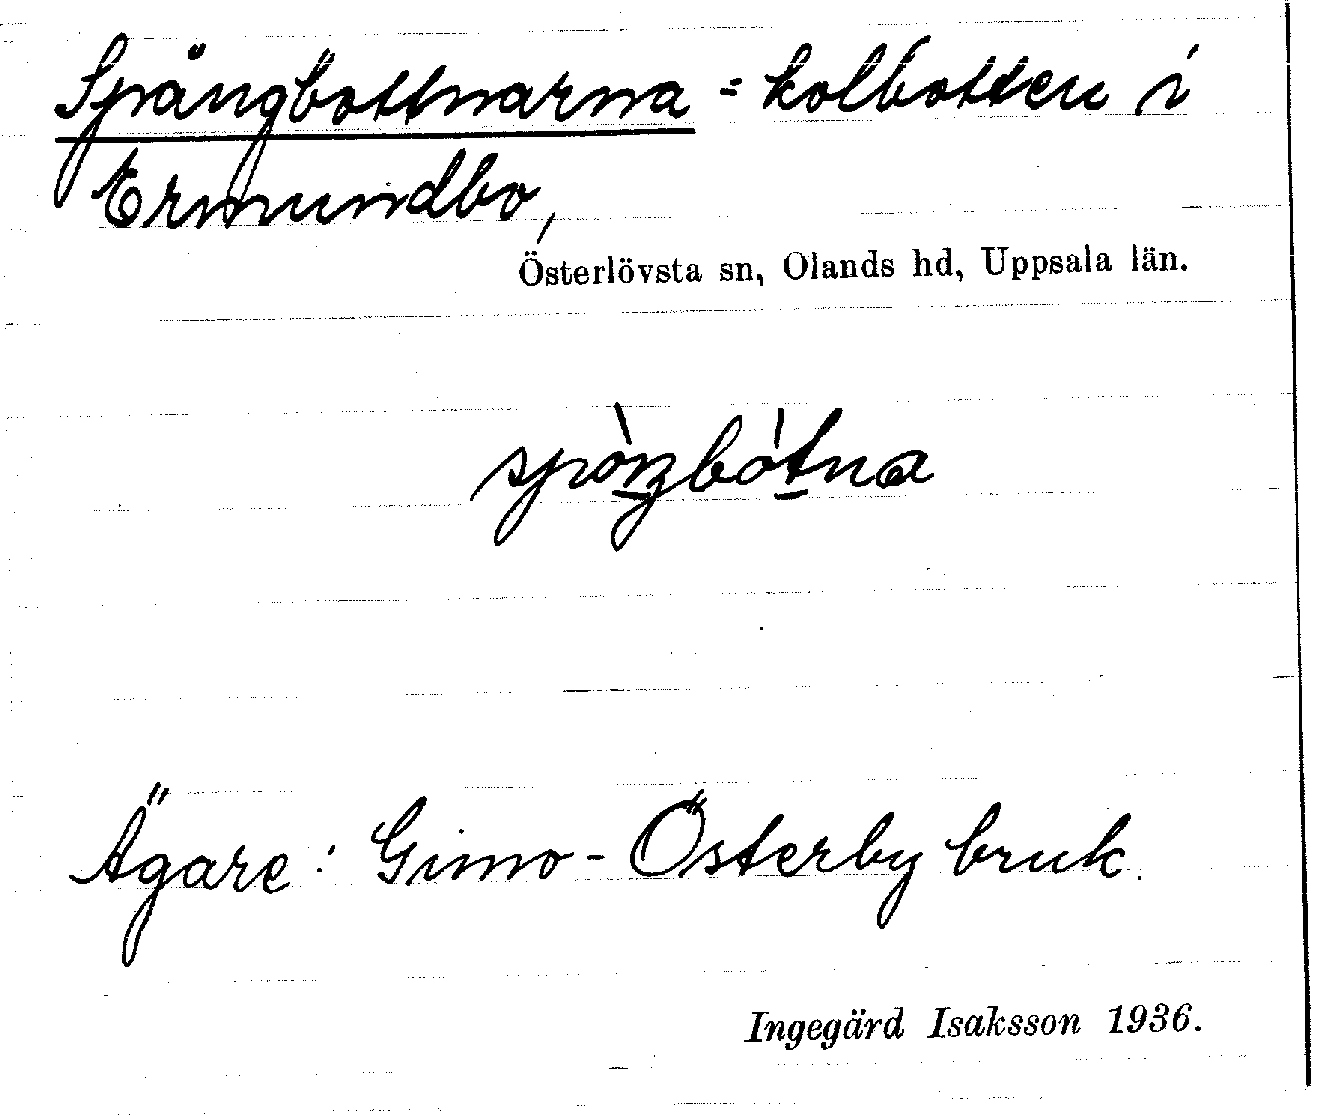 Spångbottnarna = kolbotten i
Ermundbo,
Österlövsta sn, Olands hd, Uppsala län.
spòŋbòtna
Ägare: Gimo-Österby bruk.
Ingegärd Isaksson 1936.